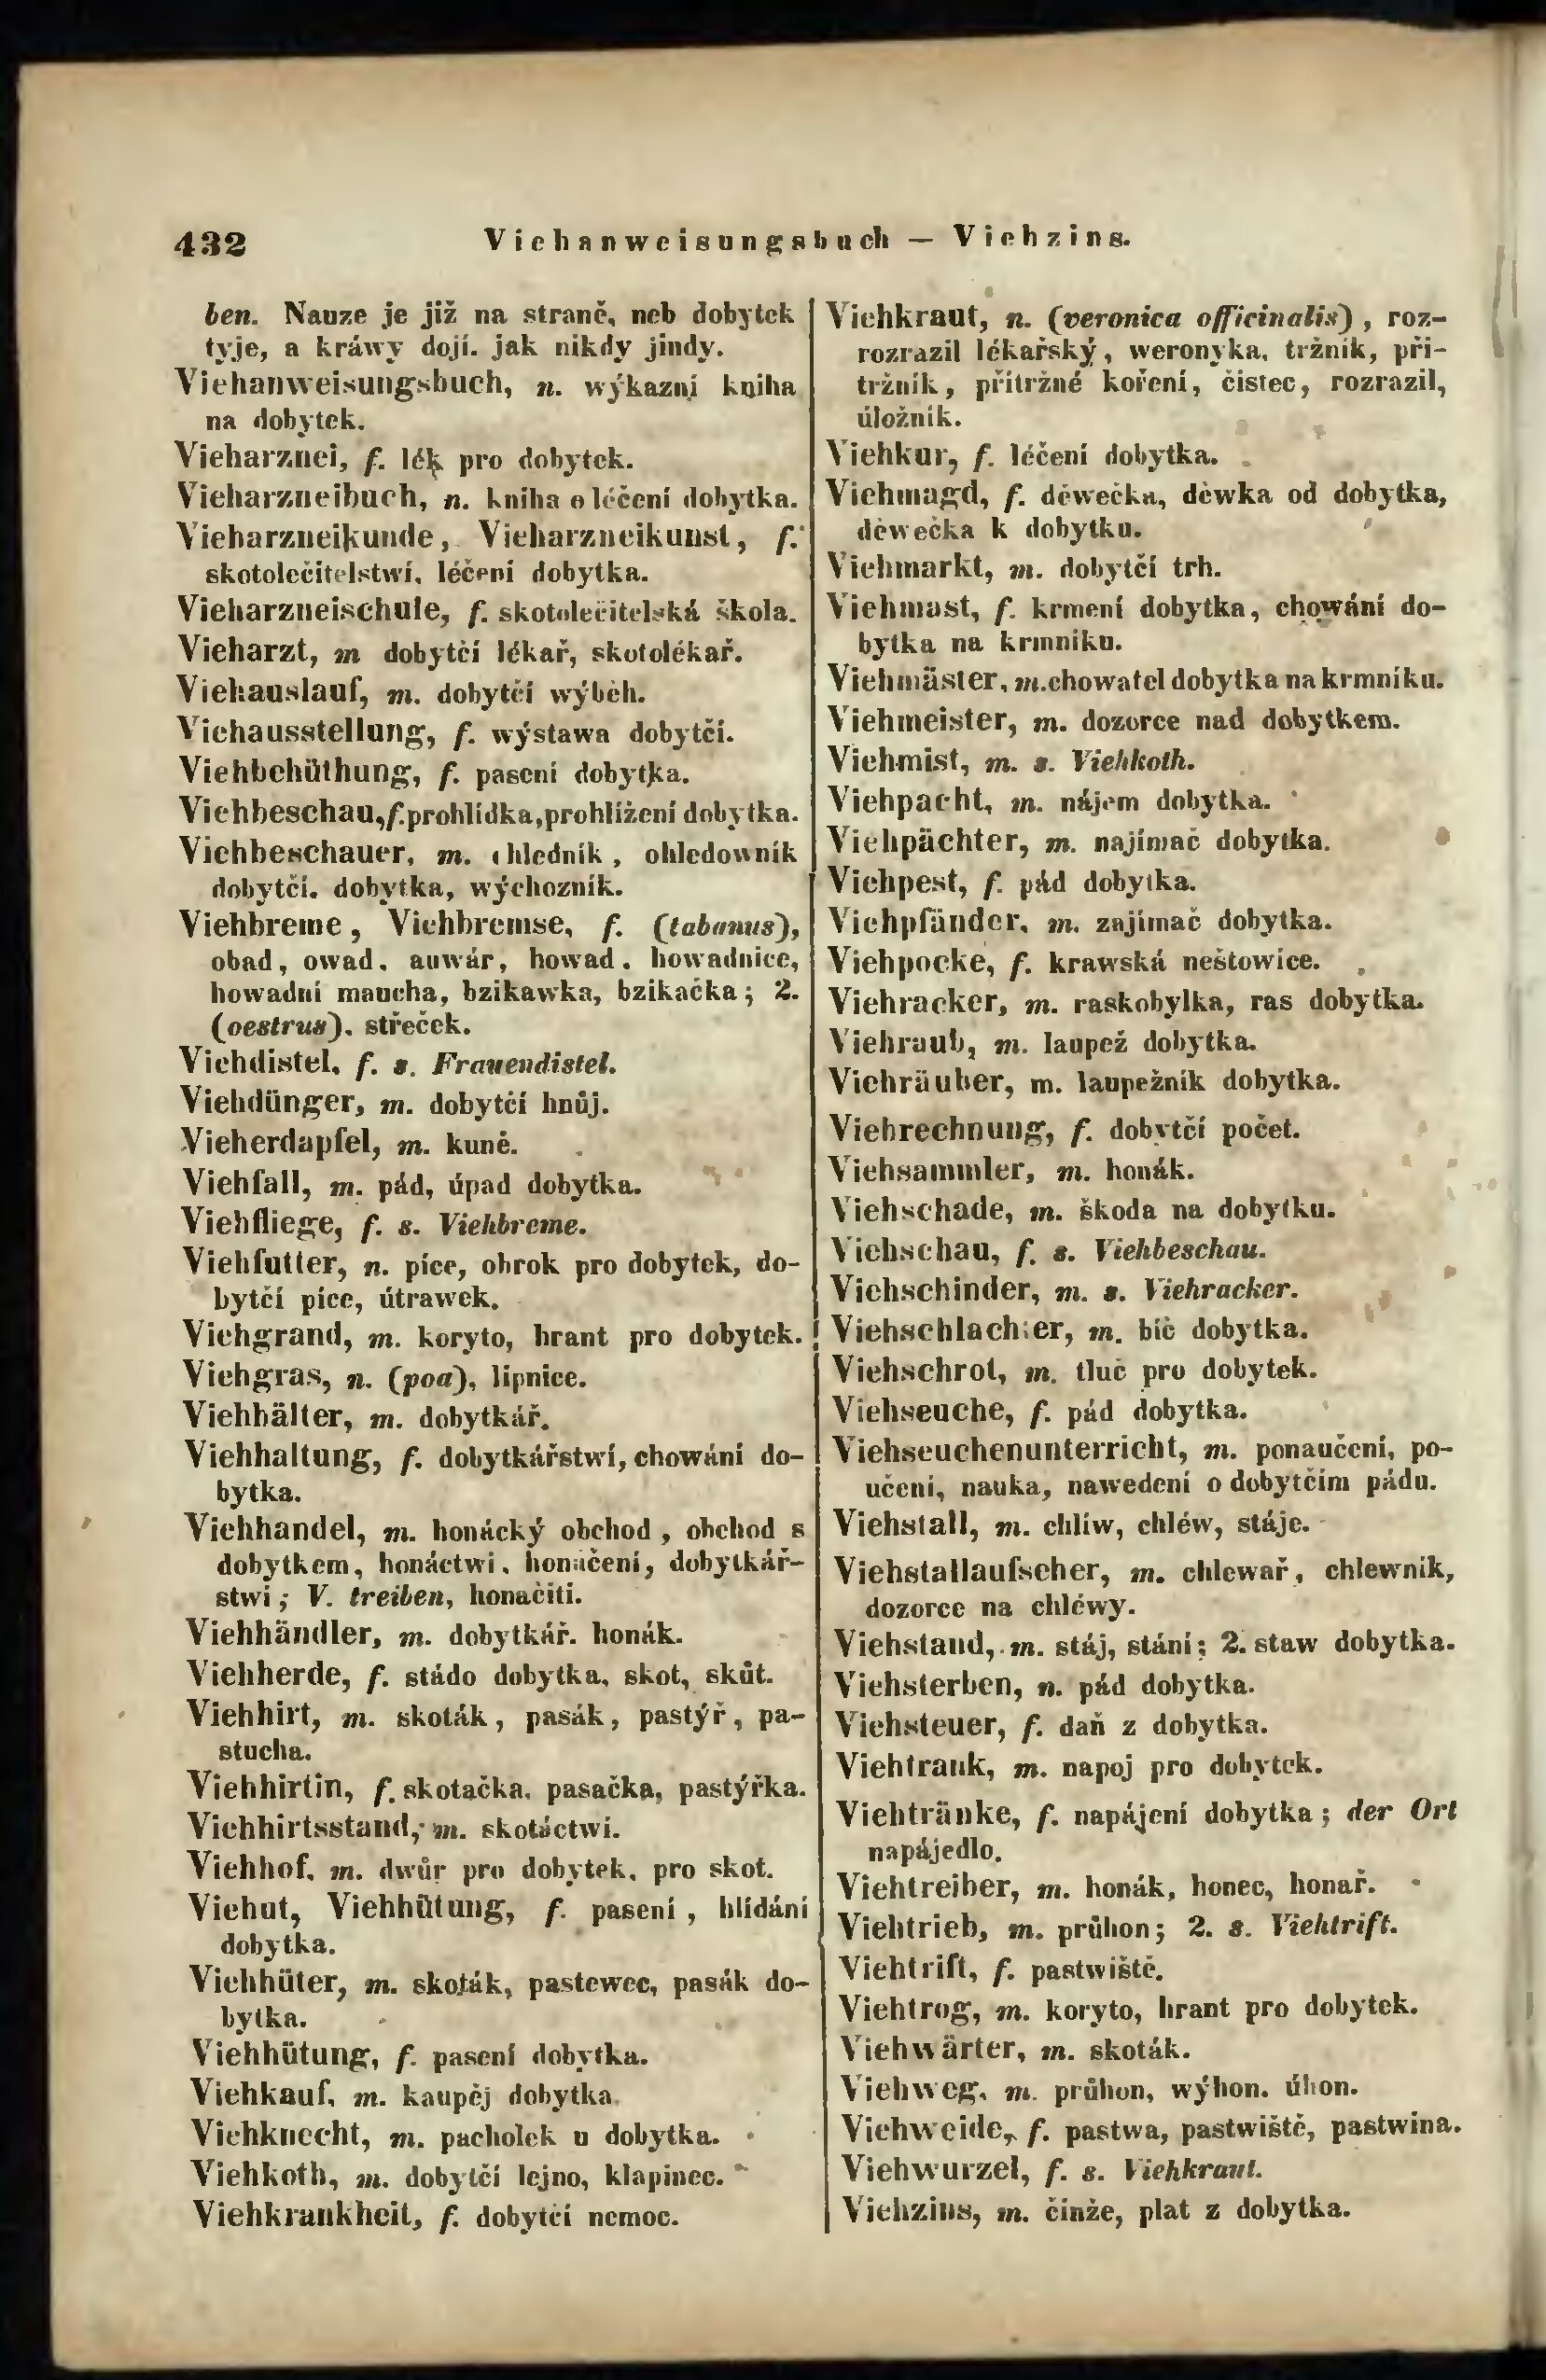 432
Viehanweisungsbuch — Viehzins.
ben. Nauze je již na straně, neb dobytek
tyje, a kráwy dojí. jak nikdy jindy.
Viehanweisungsbuch, n. wýkazní kniha
na dobytek.
Vieharznei, f. lék pro dobytek.
Vieharzneibuch, n. kniha o léčení dobytka.
Vieharzneikunde, Vieharzneikunst, f.
skotolečitelstwí, léčení dobytka.
Vieharzneischule, f. skotolečitelská škola.
Vieharzt, m dobytčí lékař, skotolékař.
Viehauslauf, m. dobytčí wýběh.
Viehausstellung, f. wýstawa dobytčí.
Viehbehüthung, f. pasení dobytka.
Viehbeschau, f. prohlídka, prohlížení dobytka.
Viehbeschauer, m. ohledník, ohledowník
dobytčí. dobytka, wýchozník.
Viehbreme, Viehbremse, f. (tabanus),
obad, owad, auwár, howad. howadnice,
howadní maucha, bzikawka, bzikačka; 2.
(oestrus), střeček.
Viehdistel, f. s. Frauendistel.
Viehdünger, m. dobytčí hnůj.
Vieherdapfel, m. kuně.
Viehfall, m. pád, úpad dobytka.
Viehfliege, f. s. Viehbreme.
Viehfutter, n. píce, obrok pro dobytek, do-
bytčí píce, útrawek.
Viehgrand, m. koryto, hrant pro dobytek.
Viehgras, n. (poa), lipnice.
Viehhälter, m. dobytkář.
Viehhaltung, f. dobytkářstwí, chowání do-
bytka.
Viehhandel, m. honácký obchod, obchod s
dobytkem, honáctwi, honáčení, dobytkář-
stwi; V. treiben, honačiti.
Viehhändler, m. dobytkář. honák.
Viehherde, f. stádo dobytka, skot, skůt.
Viehhirt, m. skoták, pasák, pastýř, pa-
stucha.
Viehhirtin, f. skotačka, pasačka, pastýřka.
Viehhirtsstand, m. skotáctwi.
Viehhof, m. dwůr pro dobytek, pro skot.
Viehut, Viehhütung, f. pasení, hlídání
dobytka.
Viehhüter, m. skoták, pastewec, pasák do-
bytka.
Viehhütung, f. pasení dobytka.
Viehkauf, m. kaupěj dobytka.
Viehknecht, m. pacholek u dobytka.
Viehkoth, m. dobytčí lejno, klapinec.
Viehkrankheit, f. dobytčí nemoc.
Viehkraut, n. (veronica officinalis), roz-
rozrazil lékařský, weronyka, tržník, při-
tržník, přítržné koření, čistec, rozrazil,
úložník.
Viehkur, f. léčení dobytka.
Viehmagd, f. děwečka, děwka od dobytka,
děwečka k dobytku.
Viehmarkt, m. dobytčí trh.
Viehmast, f. krmení dobytka, chowání do-
bytka na krmníku.
Viehmäster, m. chowatel dobytka na krmníku.
Viehmeister, m. dozorce nad dobytkem.
Viehmist, m. s. Viehkoth.
Viehpacht, m. nájem dobytka.
Viehpächter, m. najímač dobytka.
Viehpest, f. pád dobytka.
Viehpfänder, m. zajímač dobytka.
Viehpocke, f. krawská neštowice.
Viehracker, m. raskobylka, ras dobytka.
Viehraub, m. laupež dobytka.
Viehräuber, m. laupežník dobytka.
Viehrechnung, f. dobytčí počet.
Viehsammler, m. honák.
Viehschade, m. škoda na dobytku.
Viehschau, f. s. Viehbeschau.
Viehschinder, m. s. Viehracker.
Viehschlachter, m. bič dobytka.
Viehschrot, m. tluč pro dobytek.
Viehseuche, f. pád dobytka.
Viehseuchenunterricht, m. ponaučení, po-
učení, nauka, nawedení o dobytčím pádu.
Viehstall, m. chlíw, chléw, stáje.
Viehstallaufscher, m. chlewař, chlewník,
dozorce na chléwy.
Viehstand, m. stáj, stání; 2. staw dobytka.
Viehsterben, n. pád dobytka.
Viehsteuer, f. daň z dobytka.
Viehtrank, m. napoj pro dobytek.
Viehtränke, f. napájení dobytka; der Ort
napájedlo.
Viehtreiber, m. honák, honec, honař.
Viehtrieb, m. průhon; 2. s. Viehtrift.
Viehtrift, f. pastwiště.
Viehtrog, m. koryto, hrant pro dobytek.
Viehwärter, m. skoták.
Viehweg, m. průhon, wýhon. úhon.
Viehweide, f. pastwa, pastwiště, pastwina.
Viehwurzel, f. s. Viehkraut.
Viehzins, m. činže, plat z dobytka.